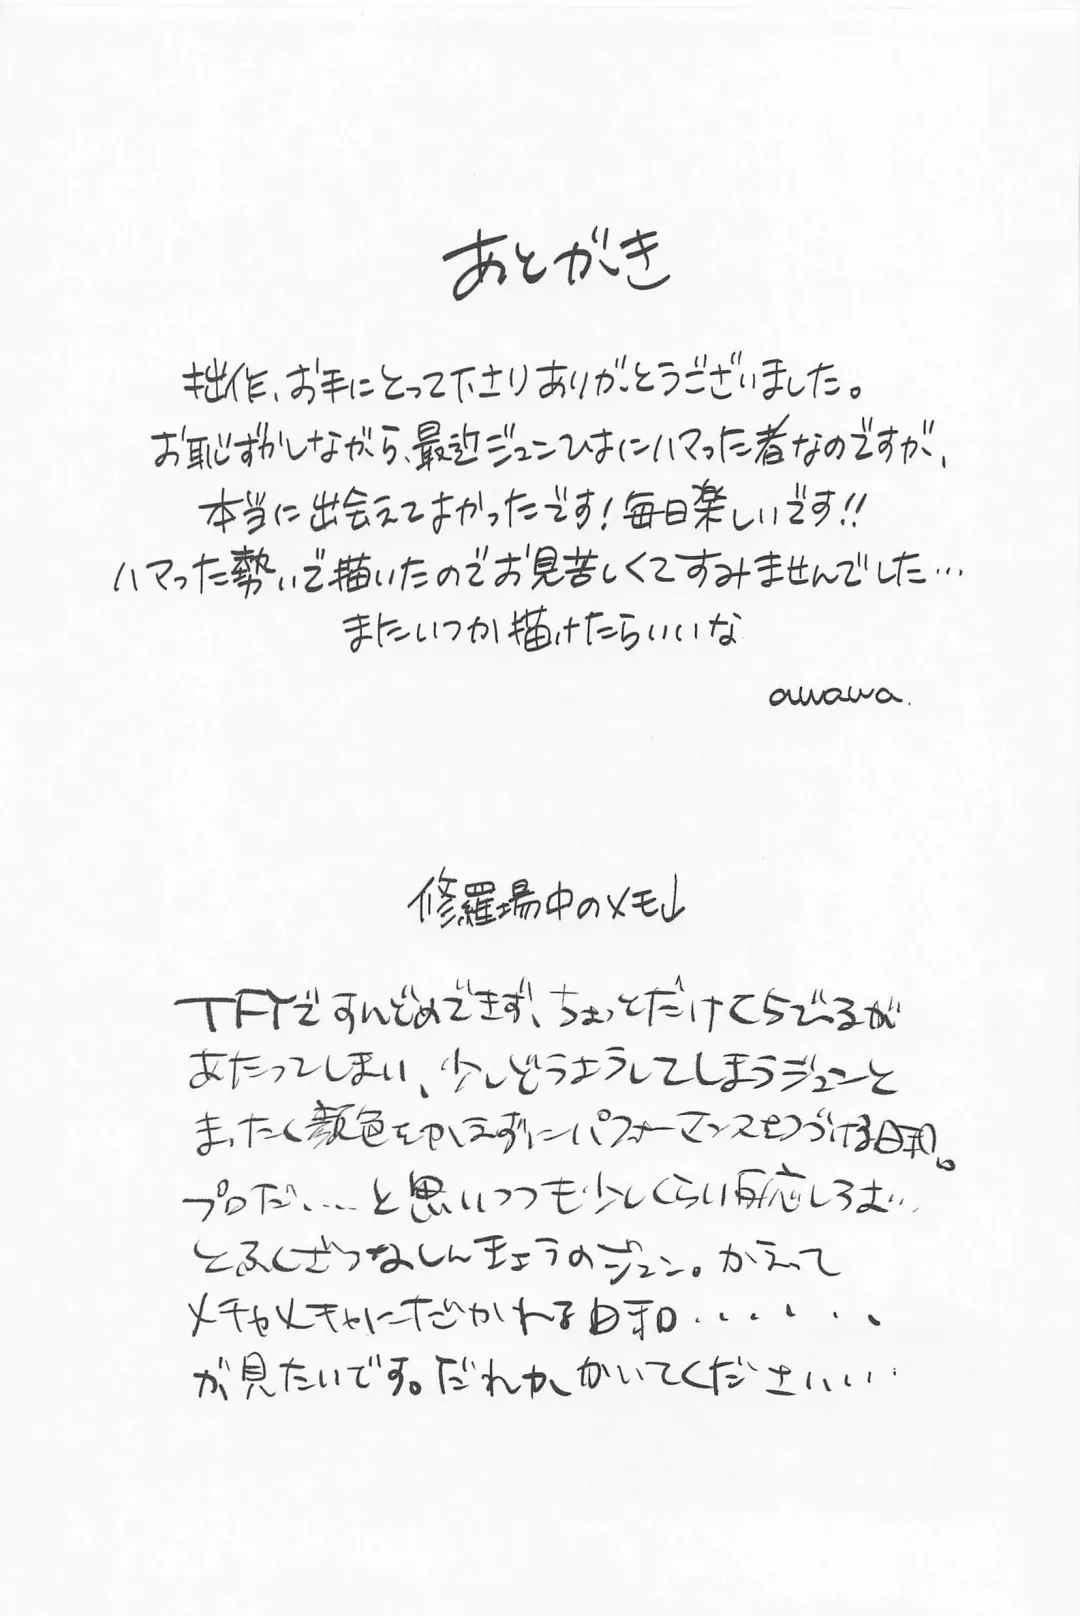 あとがき
拙作、お手にとって下さりありがとうございました。
お恥ずかしながら、最近ジュンひよにハマった者なのですが、
本当に出会えてよかったです!毎日楽しいです!!
ハマった勢いで描いたのでお見苦しくてすみませんでした…
またいつか描けたらいいな
awawa.
修羅場中のメモ↓
TFYですんどめできず、ちょっとだけくちびるが
あたってしまい、少しどうようしてしまうジュンと
まったく顔色をかえずにパフォーマンスをつづける日和。
プロだ....と思いつつも少しくらい反応しろよ..
とふくざつなしんきょうのジュン。かえって
メチャメチャにだかれる日和......
が見たいです。だれか、かいてくださいいい...